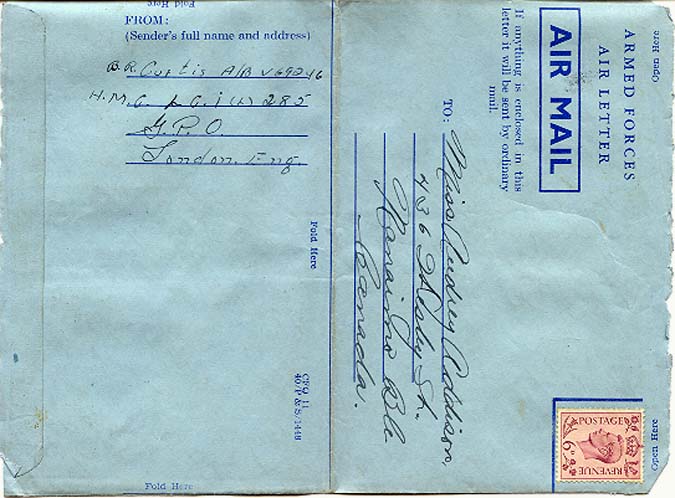 Fold Here
FROM:
(Sender's full name and address)
B.R. Curtis A/B V69246
G.P.O.
London. Eng.
Fold Here
CFQ 11
40/P & S/1448
Fold Here
Open Here
ARMED FORCES
AIR LETTER
AIR MAIL
If anything is enclosed in this
letter it will be sent by ordinary
mail.
TO:
Miss Audrey Addison,
436 St.,
Nanaimo B.C.
Canada.
POSTAGE
6D
REVENUE
Open Here